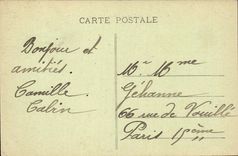 CARTE POSTALE
Bonjour et
amitiés.
Camille
Cabin
Mr Mme
Géhanne
66 rue de Vouillé
Paris 15ème